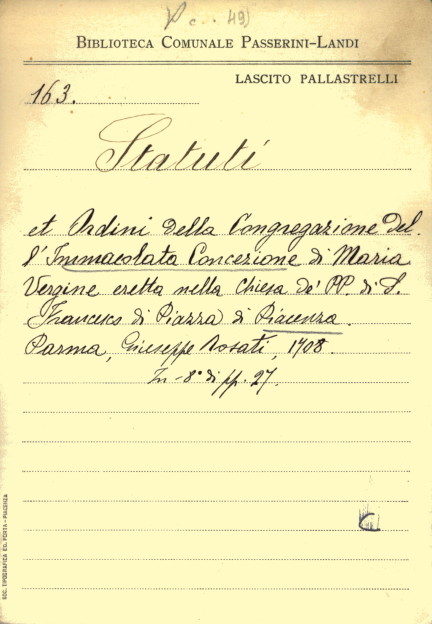 c.. 49)
BIBLIOTECA COMUNALE PASSERINI-LANDI
LASCITO PALLASTRELLI
163.
Statuti
et Ordini della Congregazione del-
l'Immacolata Concezione di Maria
Vergine eretta nella Chiesa de' PP. di S.
Francesco di Piazza di Piacenza.
Parma, Giuseppe Rosati, 1708.
In-8° di pp. 27.
C
SOC. TIPOGRAFICA ED. PORTA - PIACENZA